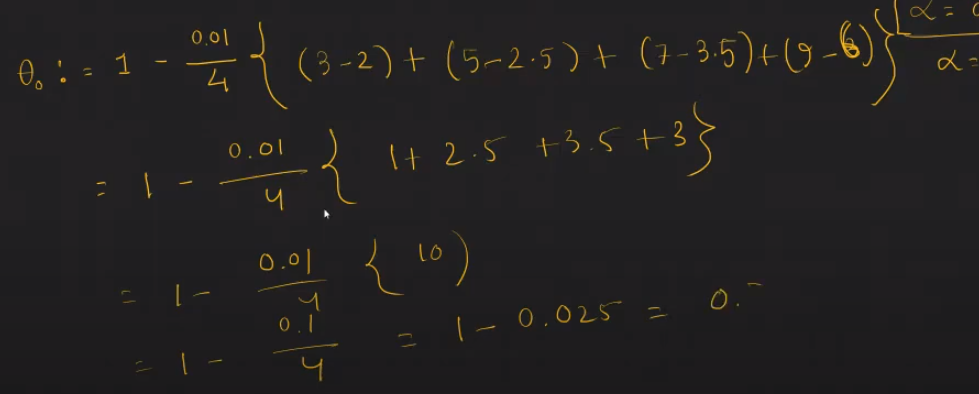 θ₀ := 1 - 0.01/4 { (3-2) + (5-2.5) + (7-3.5) + (9-6) } α =
α =
= 1 - 0.01/4 { 1 + 2.5 + 3.5 + 3 }
= 1 - 0.01/4 { 10 )
= 1 - 0.1/4 = 1 - 0.025 = 0.